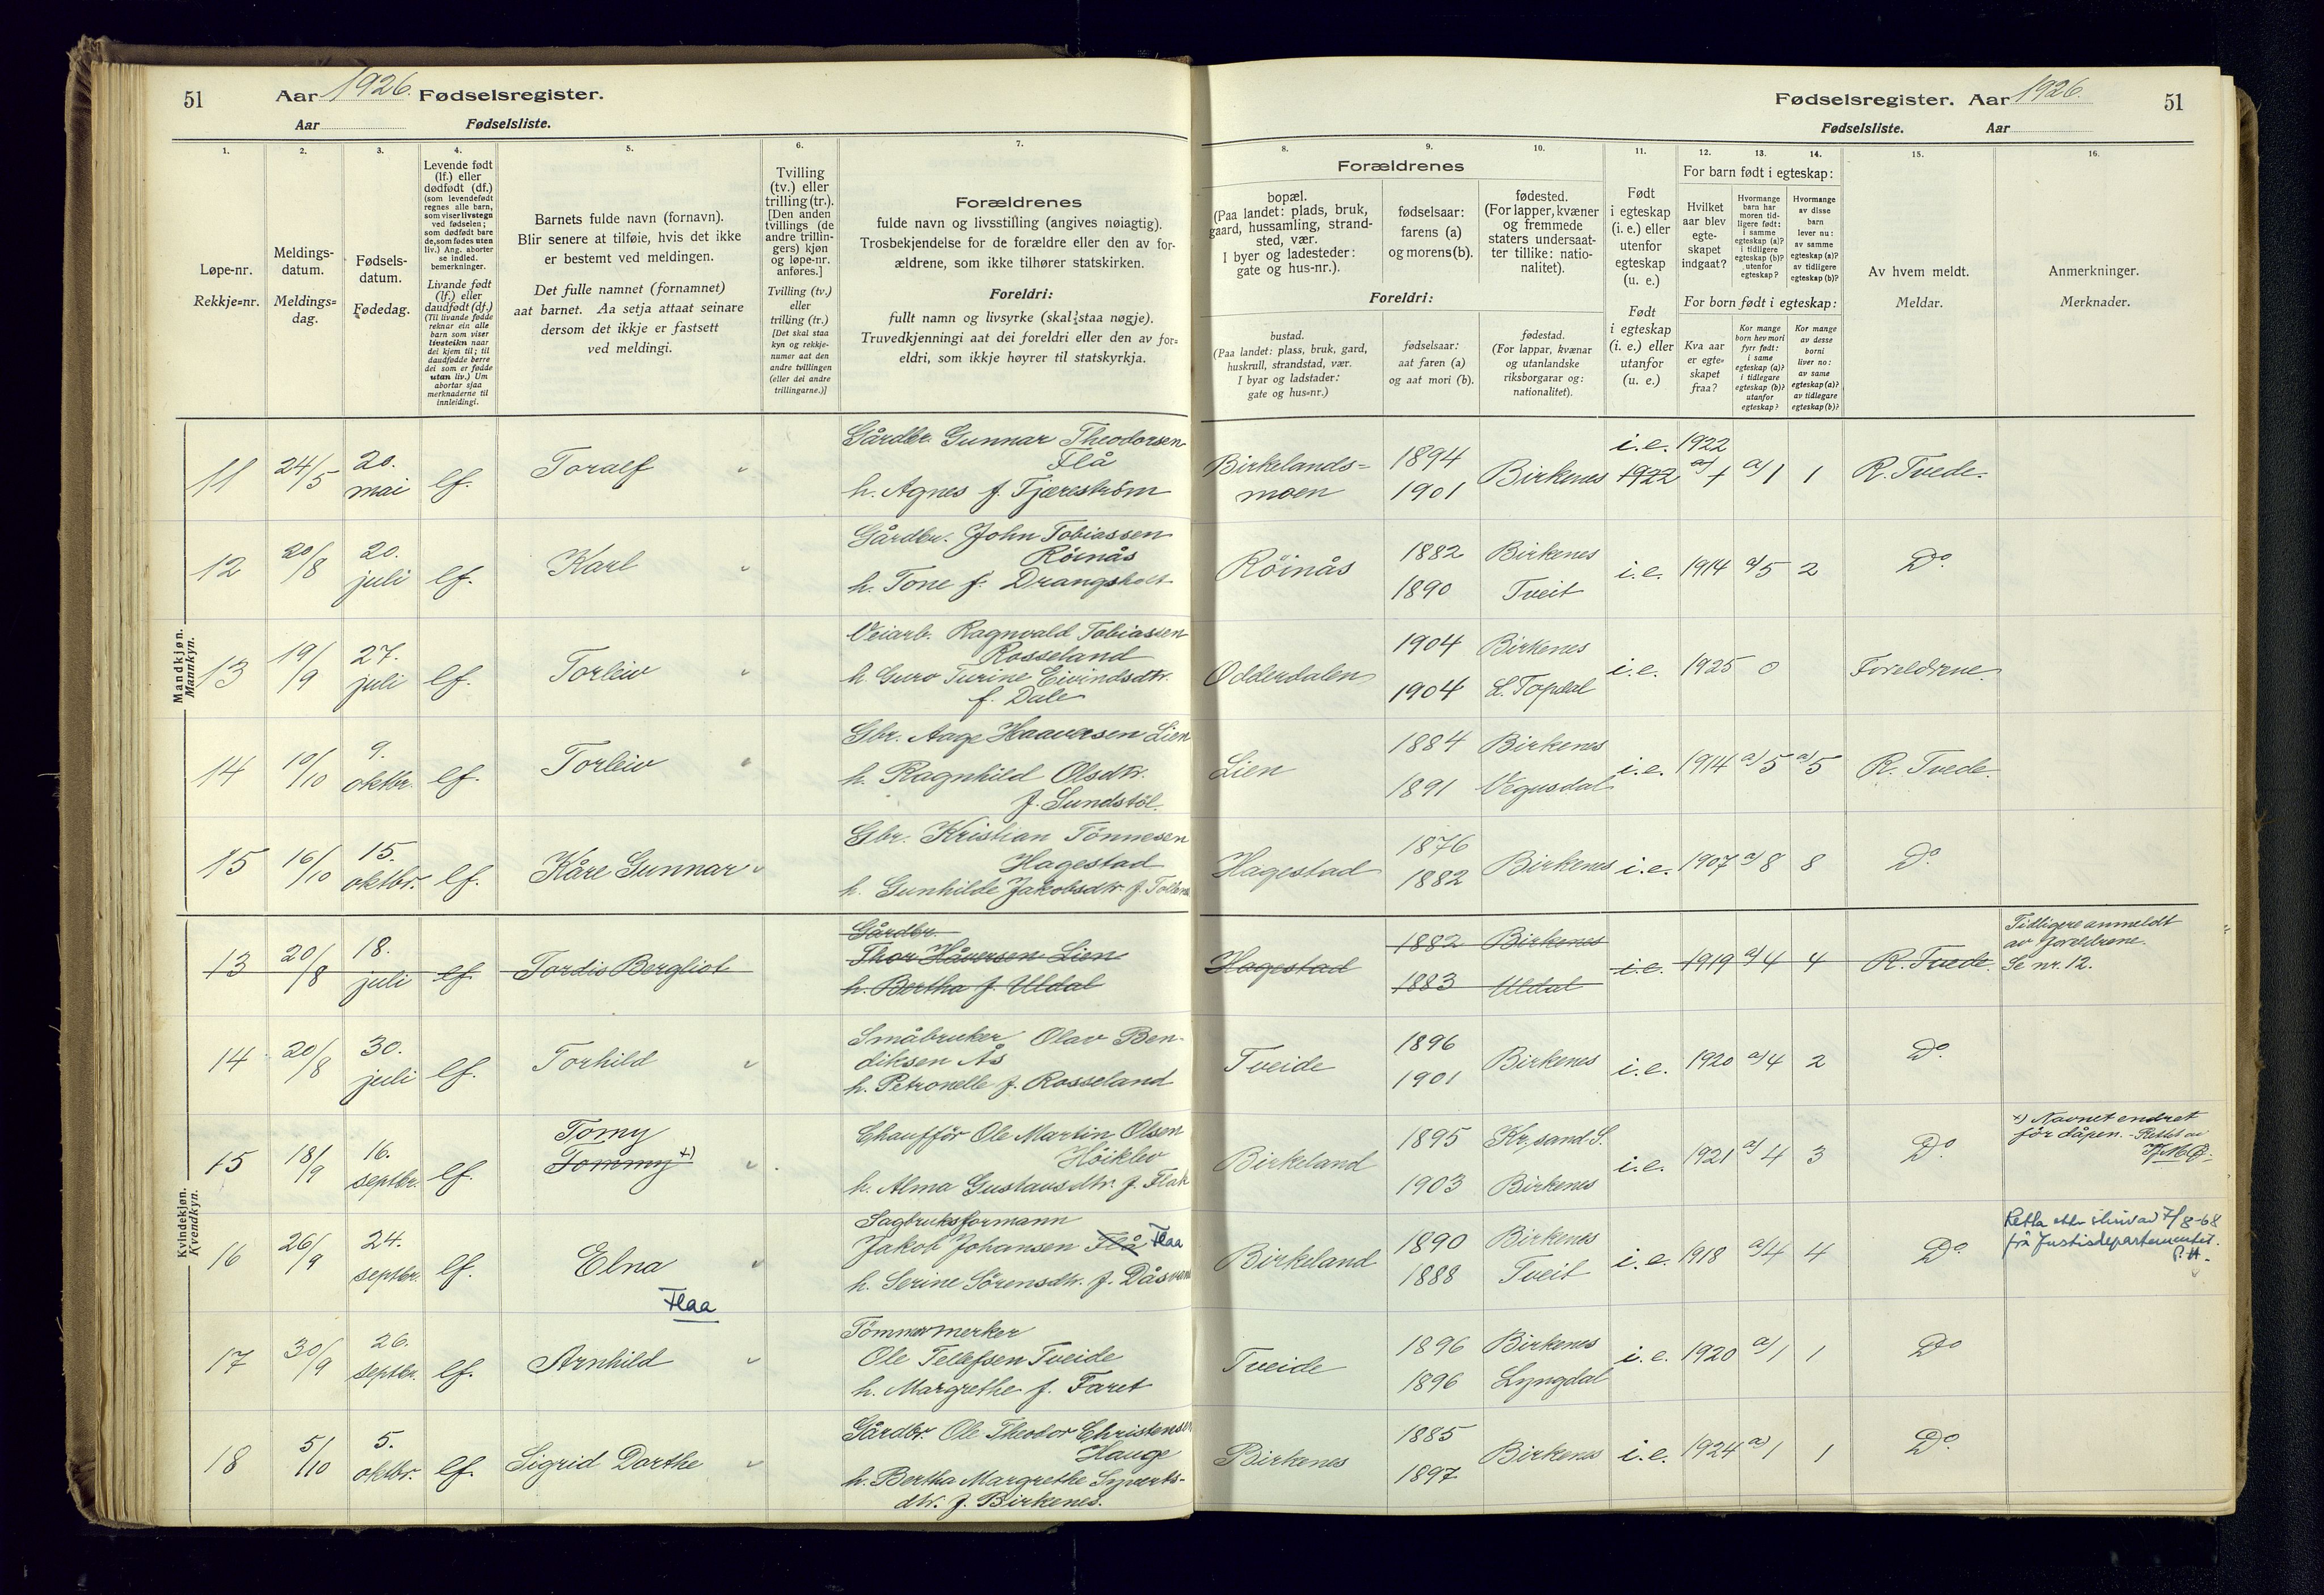 51
Aar 1926. Fødselsregister.
Aar Fødselsliste.
Fødselsregister. Aar 1926.
51
Fødselsliste. Aar
1.
Løpe-nr.
Rekkje=nr.
2.
Meldings-
datum.
Meldings=
dag.
3.
Fødsels-
datum.
Fødedag.
4.
Levende født
(lf.) eller
dødfødt (df.)
(som levendefødt
regnes alle barn,
som viser livstegn
ved fødselen;
som dødfødt bare
de, som fødes uten
liv.) Ang. aborter
se indled.
bemerkninger.
Livande født
(lf.) eller
daudfødt (df.)
(Til livande fødde
reknar ein alle
barn som viser
livsteikn naar
dei kjem til; til
daudfødde berre
dei som er fødde
utan liv.) Um
abortar sjaa
merknaderne til
innleidingi.
5.
Barnets fulde navn (fornavn).
Blir senere at tilføie, hvis det ikke
er bestemt ved meldingen.
Det fulle namnet (fornamnet)
aat barnet. Aa setja attaat seinare
dersom det ikkje er fastsett
ved meldingi.
6.
Tvilling
(tv.) eller
trilling (tr.).
[Den anden
tvillings (de
andre trillin-
gers) kjøn
og løpe-nr.
anføres.]
Tvilling (tv.)
eller
trilling (tr.)
[Det skal staa
kyn og rekkje-
numer aat den
andre tvillingen
(eller dei andre
trillingarne.)]
7.
Forældrenes
fulde navn og livsstilling (angives nøiagtig).
Trosbekjendelse for de forældre eller den av for-
ældrene, som ikke tilhører statskirken.
Foreldri:
fullt namn og livsyrke (skal staa nøgje).
Truvedkjenningi aat dei foreldri eller den av for=
eldri, som ikkje høyrer til statskyrkja.
8.
Forældrenes
bopæl.
(Paa landet: plads, bruk,
gaard, hussamling, strand-
sted, vær.
I byer og ladesteder:
gate og hus-nr.).
Foreldri:
bustad.
(Paa landet: plass, bruk, gard,
huskrull, strandstad, vær.
I byar og ladstader:
gate og hus=nr.)
9.
fødselsaar:
farens (a)
og morens (b).
fødselsaar:
aat faren (a)
og aat mori (b).
10.
fødested.
(For lapper, kvæner
og fremmede
staters undersaat-
ter tillike: natio-
nalitet).
fødestad.
(For lappar, kvænar
og utanlandske
riksborgarar og:
nationalitet).
11.
Født
i egteskap
(i. e.) eller
utenfor
egteskap
(u. e.)
Født
i egteskap
(i. e.) eller
utanfor
(u. e.)
12. 13. 14.
For barn født i egteskap:
Hvilket
aar blev
egte-
skapet
indgaat?
Hvormange
barn har
moren tid-
ligere født:
i samme
egteskap (a)?
i tidligere
egteskap (b)?
utenfor
egteskap?
Hvormange
av disse
barn
lever nu:
av samme
egteskap (a)?
av tidligere
egteskap (b)?
For born født i egteskap:
Kva aar
er egte=
skapet
fraa?
Kor mange
born hev mori
fyrr født:
i same
egteskap (a)?
i tidlegare
egteskap (b)?
utanfor
egteskap?
Kor mange
av desse
borni
liver no:
av same
egteskap (a)?
av tidlegare
egteskap (b)?
15.
Av hvem meldt.
Meldar.
16.
Anmerkninger.
Merknader.
Mandkjøn.
Mannkyn.
11 24/5 20. mai lf. Toralf
Gårdbr. Gunnar Theodorsen
Flå
h. Agnes f. Tjæreström
Birkelands=
moen
1894
1901
Birkenes i.e. 1922
1922 a) 1 a) 1 1 R. Tvede.
12 20/8 20. juli lf. Karl
Gårdbr. John Tobiassen
Röinås
h. Tone f. Drangsholt
Röinås 1882 Birkenes
1890 Tveit
i.e. 1914 a) 5 2 Do.
13 19/9 27. juli lf. Torleiv
Veiarb. Ragnvald Tobiassen
Rosseland
h. Guro Turine Eivindsdtr.
f. Dale
Odderdalen 1904 Birkenes
1904 L. Topdal
i.e. 1925 0 Foreldrene.
14 10/10 9. oktbr. lf. Torleiv
Gbr. Aage Haaversen Lien
h. Ragnhild Olsdtr.
f. Sundstöl.
Lien 1884 Birkenes
1891 Vegusdal
i.e. 1914 a) 5 a) 5 R. Tvede.
15 16/10 15. oktbr. lf. Kåre Gunnar
Gbr. Kristian Tönnesen
Hagestad
h. Gunhilde Jakobsdtr. f.
Hagestad 1876
1882
Birkenes i.e. 1907 a) 8 8 Do.
Kvindekjøn.
Kvendkyn.
13 20/8 18. juli lf. Tordis Bergliot
Gårdbr.
Thor Håversen Lien
h. Bertha f. Uldal
Hagestad 1882 Birkenes
1883 Uldal
i.e. 1919 a) 4 4 R. Tvede.
Tidligere anmeldt
av foreldrene.
Se nr. 12.
14 20/8 30. juli lf. Torhild
Småbruker Olav Ben-
diksen Ås
h. Petronelle f. Rosseland
Tveide 1896
1901
Birkenes i.e. 1920 a) 4 2 Do.
15 18/9 16. septbr. lf. Tomy
Tommy x)
Chaufför Ole Martin Olsen
Höiklev
h. Alma Gustavsdtr. f. Flak
Birkeland 1895 Kr.sand S.
1903 Birkenes
i.e. 1921 a) 4 3 Do.
x) Navnet endret
för dåpen. - Rettet av
16 26/9 24. septbr. lf. Elna
Flaa
Sagbruksformann
Jakob Johansen Flå Flaa
h. Serine Sörensdtr. f. Dåsvann
Birkeland 1890 Birkenes
1888 Tveit
i.e. 1918 a) 4 4 Do.
Retta etter skriv av 7/8-68
frå Justisdepartementet.
P.H.
17 30/9 26. septbr. lf. Arnhild
Tömmermerker
Ole Tellefsen Tveide
h. Margrethe f. Faret
Tveide 1896 Birkenes
1896 Lyngdal
i.e. 1920 a) 1 1 Do
18 5/10 5. oktbr. lf. Sigrid Dorthe
Gårdbr. Ole Theodor Christensen
Hauge
h. Bertha Margrethe Syverts-
dtr. f. Birkenes.
Birkenes 1885
1897
Birkenes i.e. 1924 a) 1 1 Do.